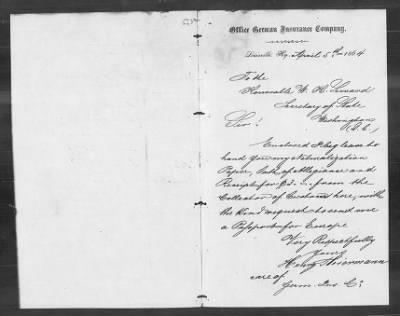 Office German Insurance Company.
Louisville Ky. April 5th 1864
To the
Honorable W. H. Seward
Secretary of State
Washington
(D.C.)
Sir!
Enclosed I beg leave to
hand you my Naturalization
Paper, Oath of Allegiance and
Receipt for $3. from the
Collector of Customs here, with
the kind request to send me
a Passport for Europe
Very Respectfully
Yours
Henry
care of
Germ. Ins. Co.